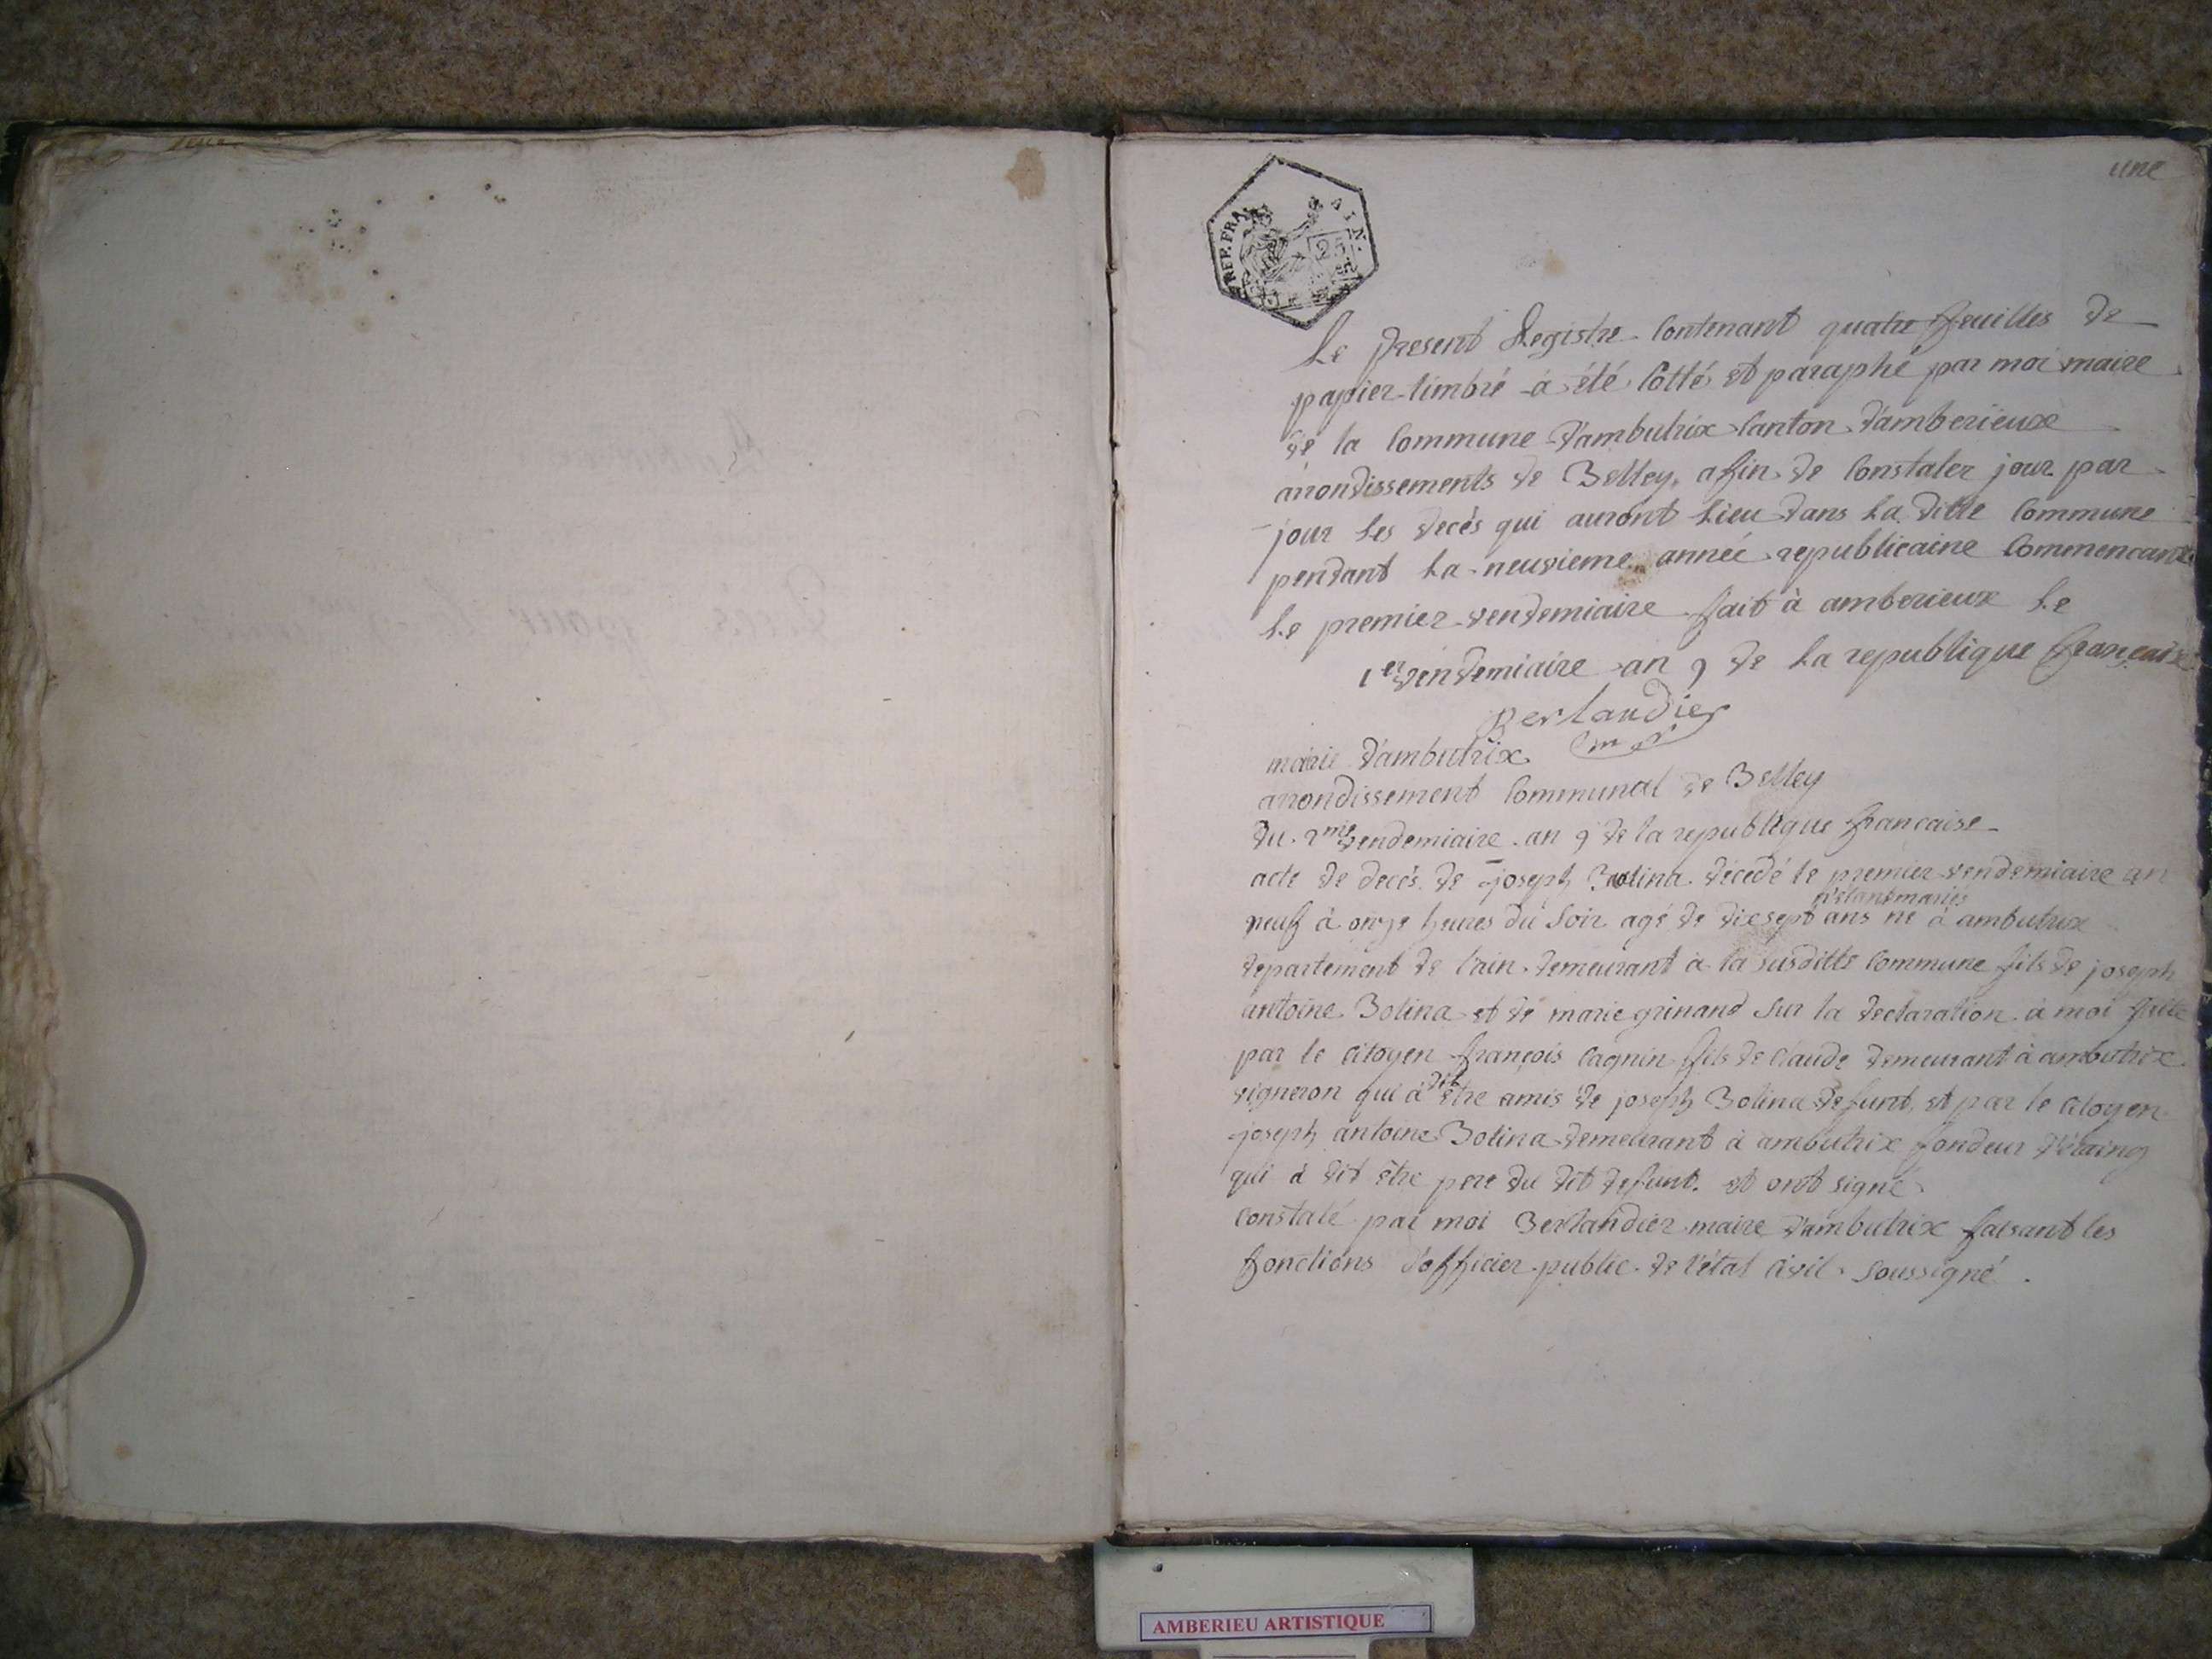 une
REP. FRA.
AIN.
25
Le present Registre Contenant quatre feuilles de
papier timbré à été Cotté et paraphé par moi maire
de la Commune d'ambutrix Canton d'amberieux
arrondissements de Belley, afin de Constater jour par
jour les decés qui auront Lieu dans La ditte Commune
pendant La neuvieme année republicaine Commencant
Le premier vendemiaire fait à amberieux Le
1er vendemiaire an 9 de La republique française
Berlandier
mer
mairie d'ambutrix
arrondissement Communal de Belley
du 2me vendemiaire an 9 de la republique francaise
acte de decés de joseph Bolina décédé le premier vendemiaire an
neuf à onze heures du Soir agé de dix sept ans né à ambutrix
departement de l'ain demeurant à la susditte Commune fils de joseph
antoine Bolina et de marie grinand Sur la declaration à moi faite
par le Citoyen françois Cagnin fils de Claude demeurant à ambutrix
vigneron qui à dit être amis de joseph Bolina defunt, et par le Citoyen
joseph antoine Bolina demeurant à ambutrix fondeur d'étaing
qui à dit être pere du dit defunt. et ont signé
Constaté par moi Berlandier maire d'ambutrix faisant les
fonctions d'officier public de l'état Civil Soussigné.
AMBERIEU ARTISTIQUE